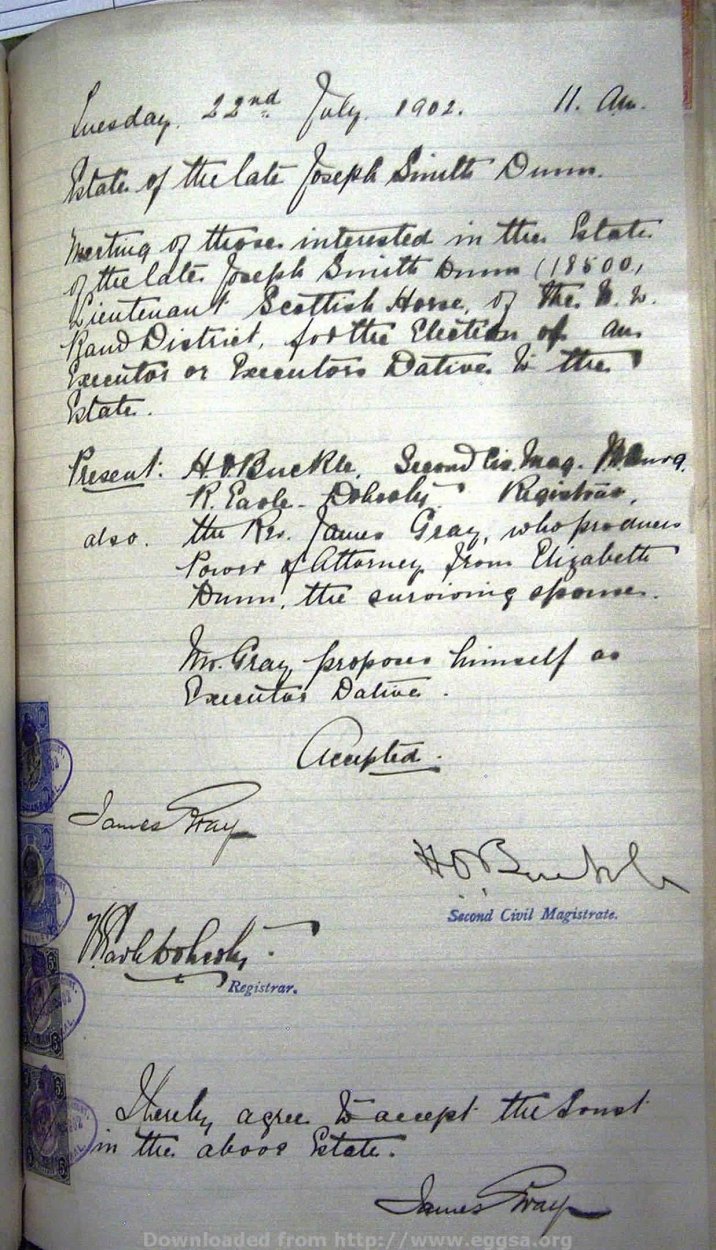 Tuesday. 22nd July. 1902. 11. Am.
Estate of the late Joseph Smith Dunn.
Meeting of those interested in the Estate
of the late Joseph Smith Dunn (18500,
Lieutenant Scottish Horse, of the W. W.
Rand District, for the Election of an
Executor or Executors Dative to the
Estate.
Present: H.O. Buckle, Second Civ. Mag. J'burg.
R. Earle-Doherty Registrar,
also. the Rev. James Gray, who produces
Power of Attorney from Elizabeth
Dunn, the surviving spouse.
Mr. Gray proposes himself as
Executor Dative.
Accepted.
James Gray
H O Buckle
Second Civil Magistrate.
Registrar.
I hereby agree to accept the trust
in the above Estate.
James Gray
Downloaded from http://www.eggsa.org